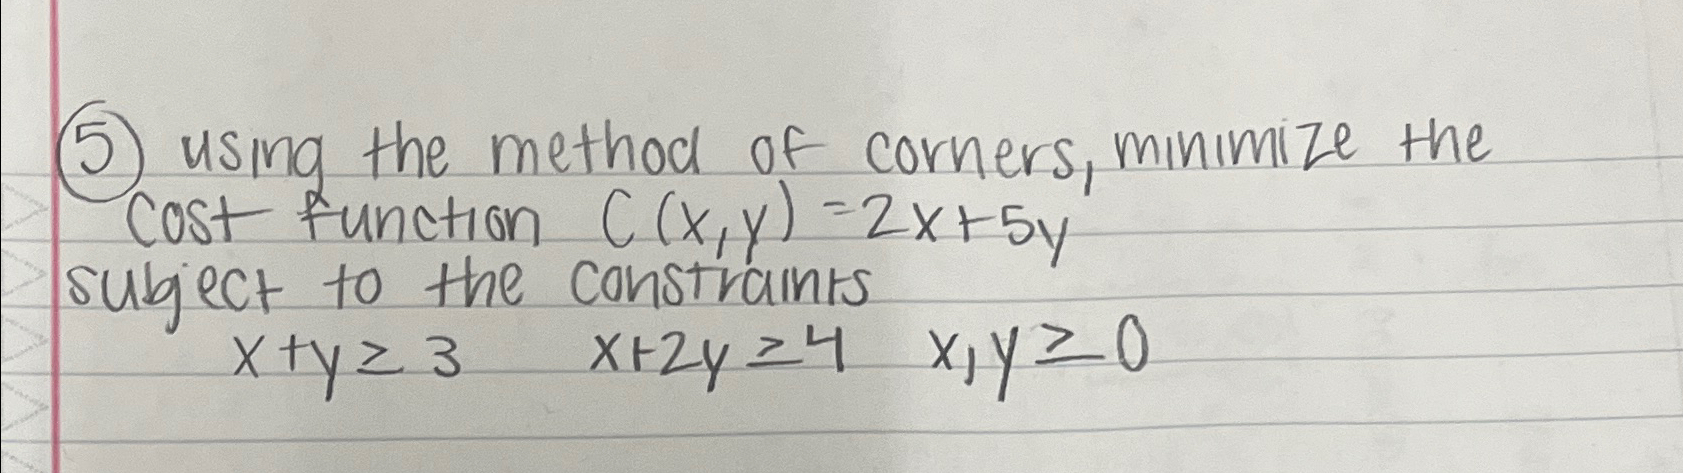 ⑤ using the method of corners, minimize the
cost function C(x,y) = 2x+5y
subject to the constraints
x+y≥3 x+2y≥4 x,y≥0